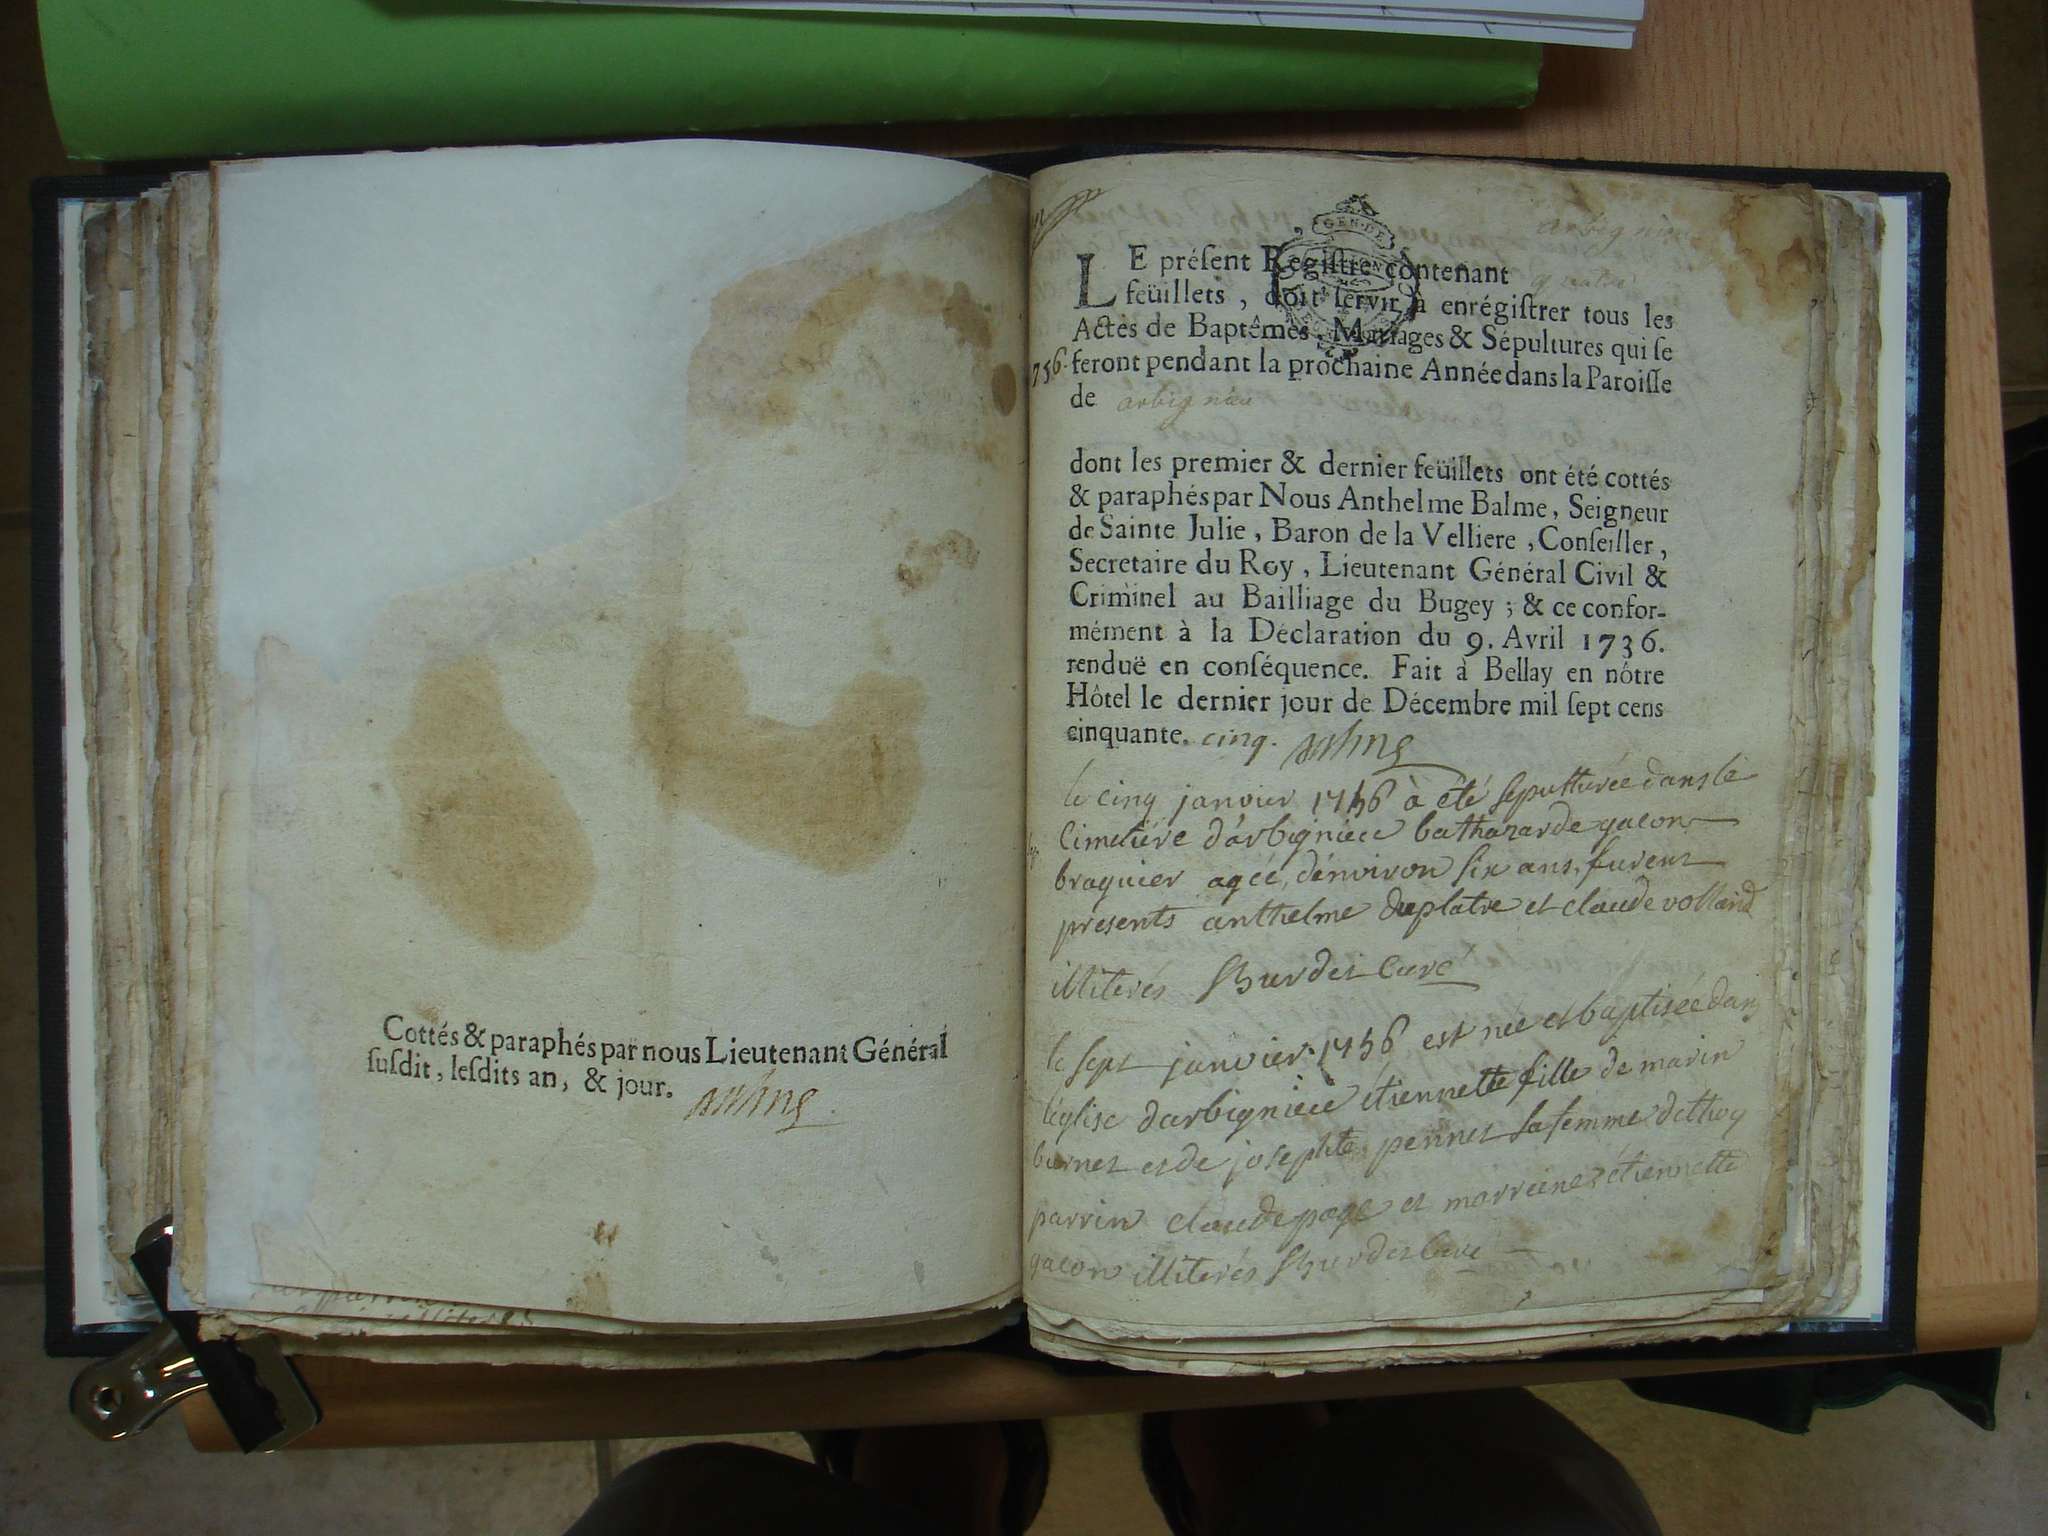 Cottés & paraphés par nous Lieutenant Général
ſuſdit, leſdits an, & jour.
arbignieu
GEN·DE
LE préſent Regiſtre contenant quatre
feüillets, doit ſervir à enrégiſtrer tous les
Actes de Baptêmes, Mariages & Sépultures qui ſe
1756. feront pendant la prochaine Année dans la Paroiſſe
de arbignieu
dont les premier & dernier feüillets ont été cottés
& paraphés par Nous Anthelme Balme, Seigneur
de Sainte Julie, Baron de la Velliere, Conſeiller,
Secretaire du Roy, Lieutenant Général Civil &
Criminel au Bailliage du Bugey; & ce confor-
mément à la Déclaration du 9. Avril 1736.
renduë en conſéquence. Fait à Bellay en nôtre
Hôtel le dernier jour de Décembre mil ſept cens
cinquante. cinq.
le cinq janvier 1756 à été sepulturée dans le
cimetiere d'arbignieu bathazarde gacon
braquier agée d'environ six ans, furent
presents anthelme duplatre et claude volland
illiterés Hurdet Curé
le sept janvier 1756 est née et baptisée dans
l'église d'arbignieu étiennette fille de marin
burnet et de josephte pennet sa femme
parrin claude page et marreine étiennette
gacon illiterés Hurdet Curé